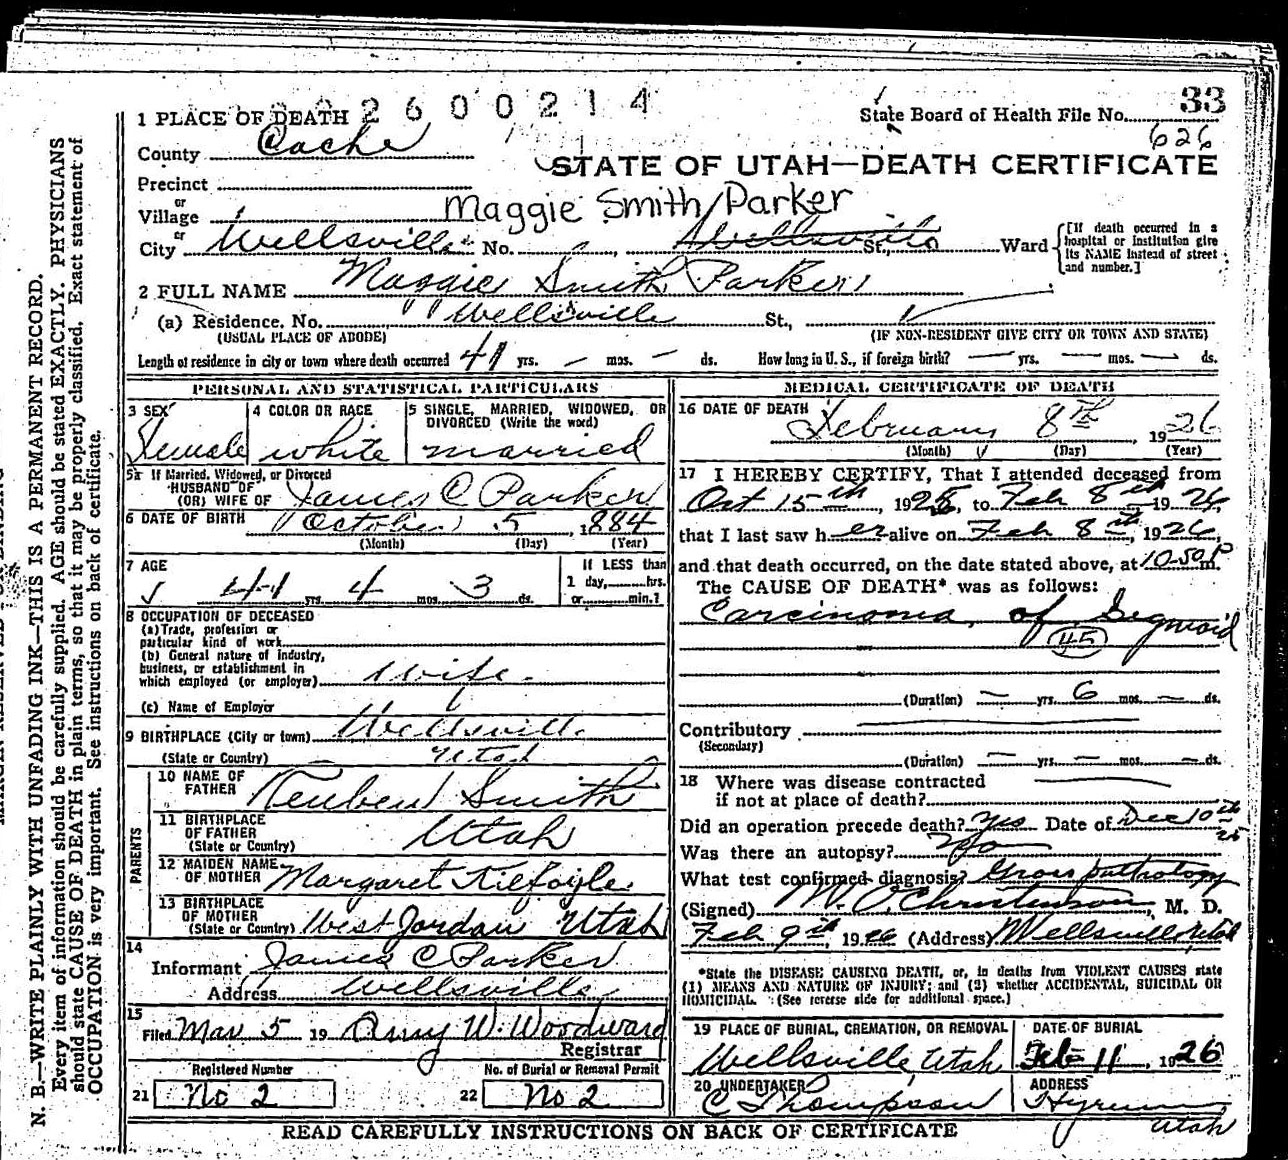 33
2600214
1 PLACE OF DEATH
State Board of Health File No.
626
County Cache
STATE OF UTAH—DEATH CERTIFICATE
Precinct
or
Village
Maggie Smith Parker
or
City Wellsville No. Wellsville St., Ward
[If death occurred in a hospital or institution give its NAME instead of street and number.]
2 FULL NAME Maggie Smith Parker
(a) Residence, No. Wellsville St.,
(USUAL PLACE OF ABODE) (IF NON-RESIDENT GIVE CITY OR TOWN AND STATE)
Length of residence in city or town where death occurred 41 yrs. — mos. — ds. How long in U. S., if foreign birth? — yrs. — mos. — ds.
PERSONAL AND STATISTICAL PARTICULARS
3 SEX 4 COLOR OR RACE 5 SINGLE, MARRIED, WIDOWED, OR DIVORCED (Write the word)
Female white married
5a If Married, Widowed, or Divorced
HUSBAND OF
(OR) WIFE OF James C Parker
6 DATE OF BIRTH October 5, 1884
(Month) (Day) (Year)
7 AGE
41 yrs. 4 mos. 3 ds.
If LESS than
1 day, hrs.
or min.?
8 OCCUPATION OF DECEASED
(a) Trade, profession or
particular kind of work
(b) General nature of industry,
business, or establishment in
which employed (or employer) Wife.
(c) Name of Employer
9 BIRTHPLACE (City or town) Wellsville
(State or Country) Utah
PARENTS
10 NAME OF
FATHER Reuben Smith
11 BIRTHPLACE
OF FATHER
(State or Country) Utah
12 MAIDEN NAME
OF MOTHER Margaret Kilfoyle
13 BIRTHPLACE
OF MOTHER
(State or Country) West Jordan Utah
14
Informant James C Parker
Address Wellsville
15
Filed Mar 5 19 Amy W. Woodward
Registrar
Registered Number No. of Burial or Removal Permit
21 No 2 22 No 2
MEDICAL CERTIFICATE OF DEATH
16 DATE OF DEATH
February 8th, 1926
(Month) (Day) (Year)
17 I HEREBY CERTIFY, That I attended deceased from
Oct 15th, 1925, to Feb 8th 1926,
that I last saw her alive on Feb 8th, 1926,
and that death occurred, on the date stated above, at 10-50 P m.
The CAUSE OF DEATH* was as follows:
Carcinoma of Sigmoid
45
(Duration) — yrs. 6 mos. — ds.
Contributory
(Secondary)
(Duration) — yrs. — mos. — ds.
18 Where was disease contracted
if not at place of death?
Did an operation precede death? Yes Date of Dec 10th 25
Was there an autopsy? No
What test confirmed diagnosis? Gross pathology
(Signed) M. O. Christenson, M. D.
Feb 9th, 1926 (Address) Wellsville Utah
*State the DISEASE CAUSING DEATH, or, in deaths from VIOLENT CAUSES state
(1) MEANS AND NATURE OF INJURY; and (2) whether ACCIDENTAL, SUICIDAL OR
HOMICIDAL. (See reverse side for additional space.)
19 PLACE OF BURIAL, CREMATION, OR REMOVAL DATE OF BURIAL
Wellsville, Utah Feb 11, 1926
20 UNDERTAKER ADDRESS
C Thompson Hyrum
Utah
READ CAREFULLY INSTRUCTIONS ON BACK OF CERTIFICATE
N. B.—WRITE PLAINLY WITH UNFADING INK—THIS IS A PERMANENT RECORD.
Every item of information should be carefully supplied. AGE should be stated EXACTLY. PHYSICIANS
should state CAUSE OF DEATH in plain terms, so that it may be properly classified. Exact statement of
OCCUPATION is very important. See instructions on back of certificate.